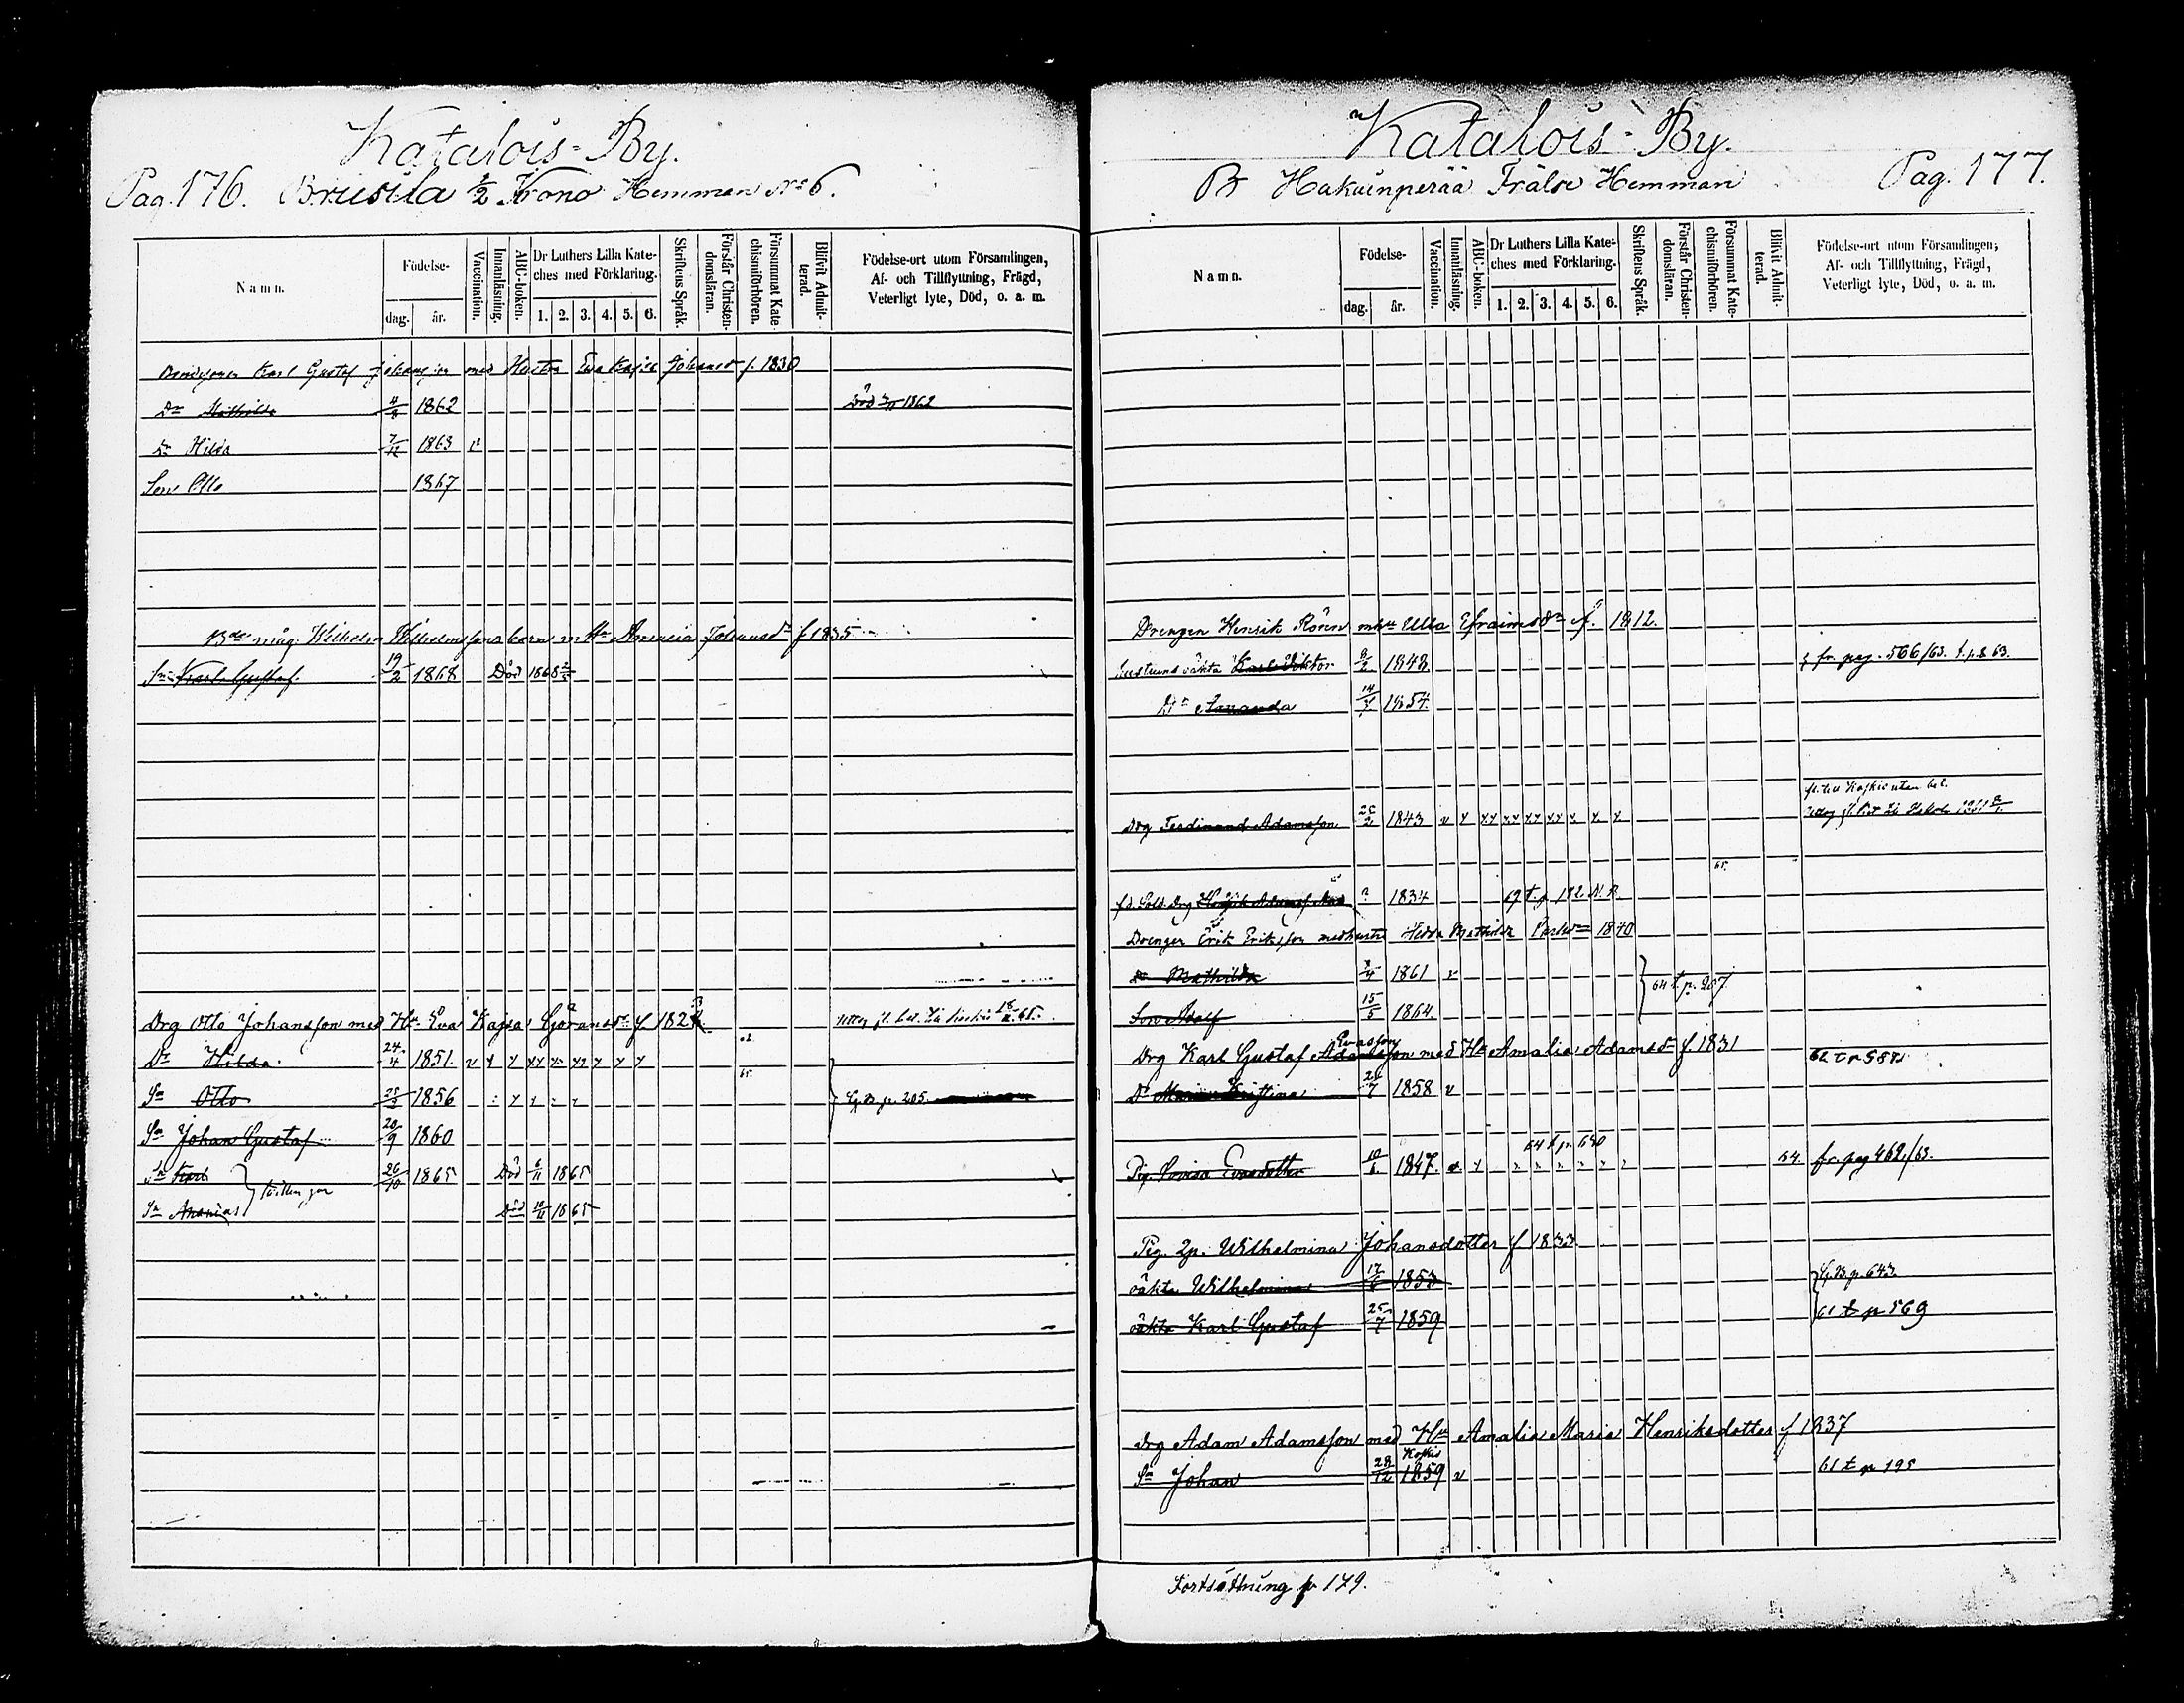 Kataloıs-By.
Pag. 176. Brusila 1/2 Krono Hemman No 6.
Namn.
Födelse-
dag.
år.
Vaccination.
Innanläsning.
ABC-boken.
Dr Luthers Lilla Kate-
ches med Förklaring.
1. 2. 3. 4. 5. 6.
Skriftens Språk.
Förstår Christen-
domsläran.
Försummat Kate-
chismiförhören.
Blifvit Admit-
terad.
Födelse-ort utom Församlingen,
Af- och Tillflyttning, Frägd,
Veterligt lyte, Död, o. a. m.
Karl Gustaf Johansson med Hustru Eva Kajsa Johansdr f. 1830
Dr Mathilda 4/8 1862 Död 1862
Dr Hilda 7/12 1863 v
Son Otto 1867
Wilhelm Wilhelmssons barn m Hu Amalia Johansdr f 1835
Sn Karl Gustaf. 19/2 1868 Död 1868
Drg Otto Johansson med Hu Eva Kajsa Göransdr f. 1823
Dr Hilda. 24/4 1851.
Sn Otto 1856 C. B. p. 205.
Sn Johan Gustaf 20/9 1860
Sn Karl 26/10 1865 Död 6/11 1865
Sn Ananias Död 10/11 1865
Kataloıs-By.
B Hakuinperää Frälse Hemman Pag. 177.
Namn.
Födelse-
dag.
år.
Vaccination.
Innanläsning.
ABC-boken.
Dr Luthers Lilla Kate-
ches med Förklaring.
1. 2. 3. 4. 5. 6.
Skriftens Språk.
Förstår Christen-
domsläran.
Försummat Kate-
chismiförhören.
Blifvit Admit-
terad.
Födelse-ort utom Församlingen,
Af- och Tillflyttning, Frägd,
Veterligt lyte, Död, o. a. m.
Drengen Henrik Rönn mhu Ulla Efraimsdr f. 1812.
Hustruns oäkta Karl Viktor 8/2 1848 fr pag. 566/63.
Dr Amanda 14/7 1854.
Drg Ferdinand Adamsson 25/2 1843
65.
f.d. Sold. Drg ? 1834 t. p 182
Drengen Erik Eriksson med hustru Hedda Mathilda 1840
Dr Mathilda 1861 v
64 t p. 207
Son Adolf 15/5 1864.
Evasson
Drg Karl Gustaf Adamsson med Hu Amalia Adamsdr f 1831
Dr Maria Kristina 1858 v
64 t p. 640
Pig. Lovisa Evasdotter 10/6 1847. 64. fr. pag 462/63.
Pig. 2p. Wilhelmina Johansdotter f 1833
oäkta Wilhelmina 17/6 1853 C. B. p. 643.
oäkta Karl Gustaf 25/7 1859 61 t p 569
Drg Adam Adamsson med Hu Amalia Maria Henriksdotter f 1837
Sn Johan 28/12 1859 v 61 t p 195
Fortsättning p 179.